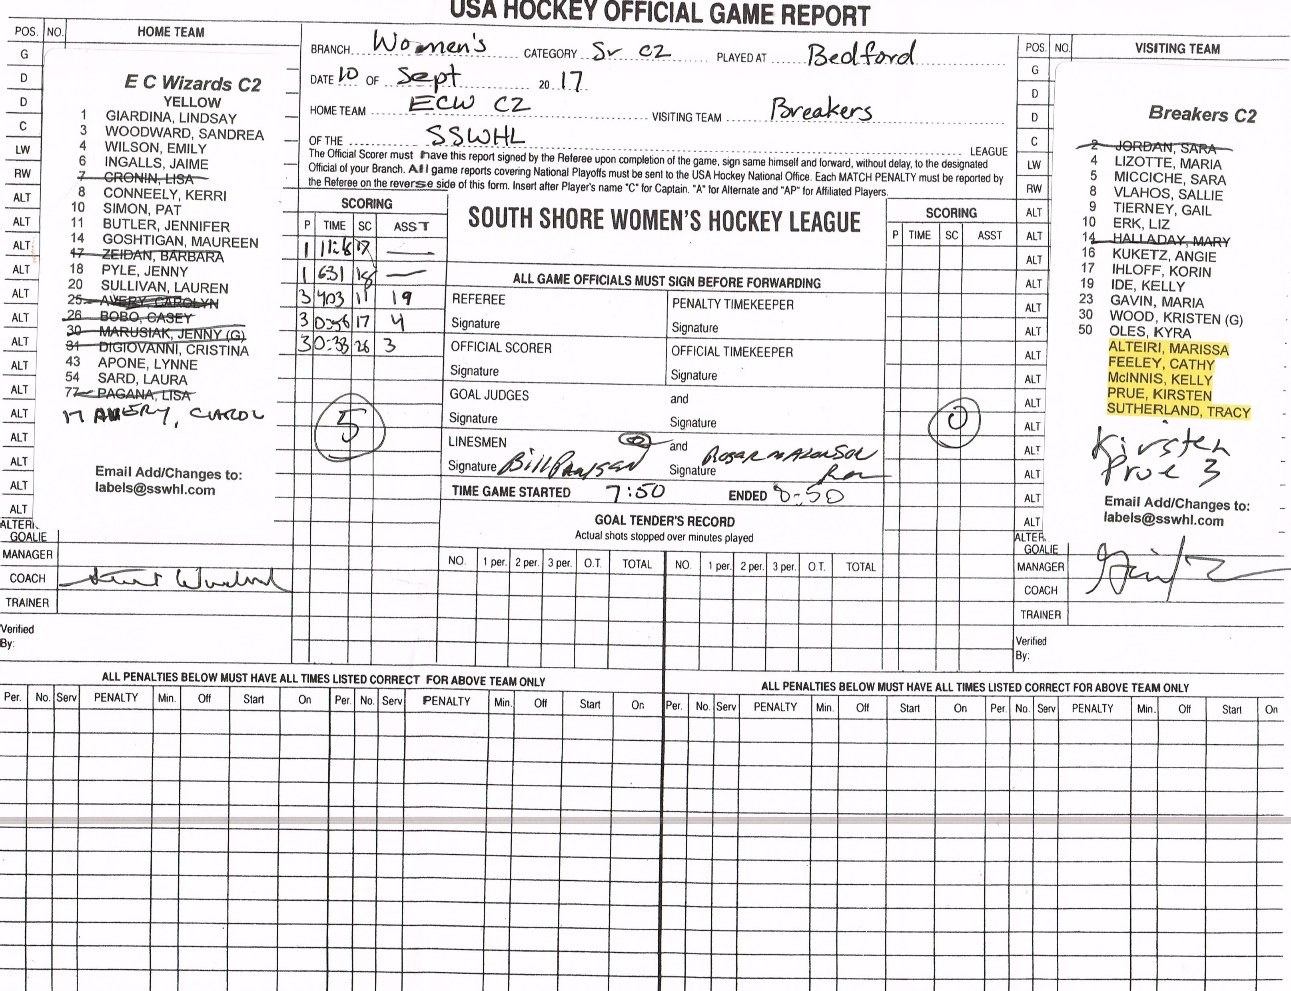 USA HOCKEY OFFICIAL GAME REPORT
POS. NO. HOME TEAM
G
D
D
C
LW
RW
ALT
ALT
ALT
ALT
ALT
ALT
ALT
ALT
ALT
ALT
ALT
ALT
ALT
ALT
E C Wizards C2
YELLOW
1 GIARDINA, LINDSAY
3 WOODWARD, SANDREA
4 WILSON, EMILY
6 INGALLS, JAIME
7 CRONIN, LISA
8 CONNEELY, KERRI
10 SIMON, PAT
11 BUTLER, JENNIFER
14 GOSHTIGAN, MAUREEN
17 ZEIDAN, BARBARA
18 PYLE, JENNY
20 SULLIVAN, LAUREN
25 AVERY, CAROLYN
26 BOBO, CASEY
30 MARUSIAK, JENNY (G)
31 DIGIOVANNI, CRISTINA
43 APONE, LYNNE
54 SARD, LAURA
77 PAGANA, LISA
17 AVERY, CAROL
Email Add/Changes to:
labels@sswhl.com
GOALIE
MANAGER
COACH
TRAINER
Verified
By:
BRANCH Women's CATEGORY Sr C2 PLAYED AT Bedford
DATE 10 OF Sept 20 17
HOME TEAM ECW C2 VISITING TEAM Breakers
OF THE SSWHL LEAGUE
The Official Scorer must have this report signed by the Referee upon completion of the game, sign same himself and forward, without delay, to the designated
Official of your Branch. All game reports covering National Playoffs must be sent to the USA Hockey National Office. Each MATCH PENALTY must be reported by
the Referee on the reverse side of this form. Insert after Player's name "C" for Captain. "A" for Alternate and "AP" for Affiliated Players.
SCORING
P TIME SC ASST
1 17 —
1 631 18 —
3 403 11 19
3 0:56 17 4
3 0:38 26 3
5
SOUTH SHORE WOMEN'S HOCKEY LEAGUE
ALL GAME OFFICIALS MUST SIGN BEFORE FORWARDING
REFEREE PENALTY TIMEKEEPER
Signature Signature
OFFICIAL SCORER OFFICIAL TIMEKEEPER
Signature Signature
GOAL JUDGES and
Signature Signature
LINESMEN and
Signature Bill Signature Roger
TIME GAME STARTED 7:50 ENDED 8:50
GOAL TENDER'S RECORD
Actual shots stopped over minutes played
NO. 1 per. 2 per. 3 per. O.T. TOTAL NO. 1 per. 2 per. 3 per. O.T. TOTAL
SCORING
P TIME SC ASST
0
POS. NO. VISITING TEAM
G
D
D
C
LW
RW
ALT
ALT
ALT
ALT
ALT
ALT
ALT
ALT
ALT
ALT
ALT
ALT
ALT
ALT
Breakers C2
2 JORDAN, SARA
4 LIZOTTE, MARIA
5 MICCICHE, SARA
8 VLAHOS, SALLIE
9 TIERNEY, GAIL
10 ERK, LIZ
14 HALLADAY, MARY
16 KUKETZ, ANGIE
17 IHLOFF, KORIN
19 IDE, KELLY
23 GAVIN, MARIA
30 WOOD, KRISTEN (G)
50 OLES, KYRA
ALTEIRI, MARISSA
FEELEY, CATHY
McINNIS, KELLY
PRUE, KIRSTEN
SUTHERLAND, TRACY
Kirsten
Prue 3
Email Add/Changes to:
labels@sswhl.com
ALTER.
GOALIE
MANAGER
COACH
TRAINER
Verified
By:
ALL PENALTIES BELOW MUST HAVE ALL TIMES LISTED CORRECT FOR ABOVE TEAM ONLY
Per. No. Serv PENALTY Min. Off Start On Per. No. Serv PENALTY Min. Off Start On
ALL PENALTIES BELOW MUST HAVE ALL TIMES LISTED CORRECT FOR ABOVE TEAM ONLY
Per. No. Serv PENALTY Min. Off Start On Per. No. Serv PENALTY Min. Off Start On